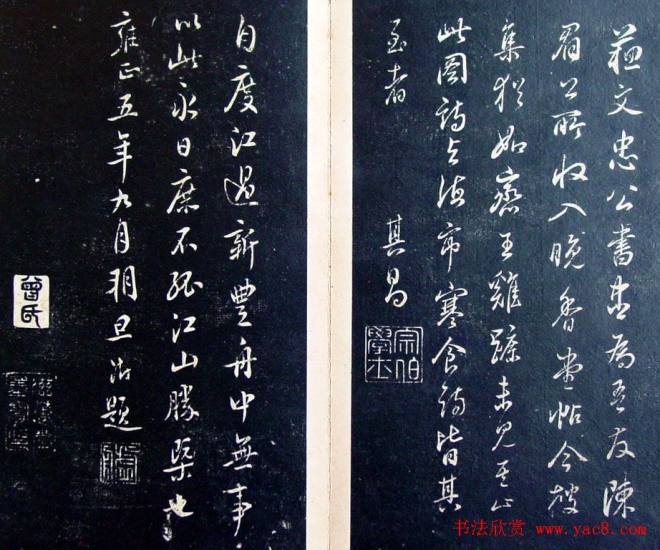 蘓文忠公書為吾友陳
眉公所收入晚香堂帖今
集猶如齊王雞蹠未見其止
此圖詩与寒食詩皆其
至者 其昌
宗伯學士
自度江過新豐舟中無事
以此永日庶不孤江山勝槩也
雍正五年九月朔旦題
曾氏
书法欣赏 www.yac8.com